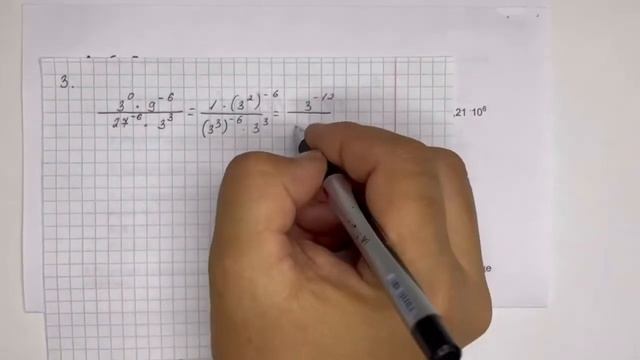 3.
3⁰ · 9⁻⁶ / 27⁻⁶ · 3³ = 1 · (3²)⁻⁶ / (3³)⁻⁶ · 3³ = 3⁻¹²
,21 10⁶